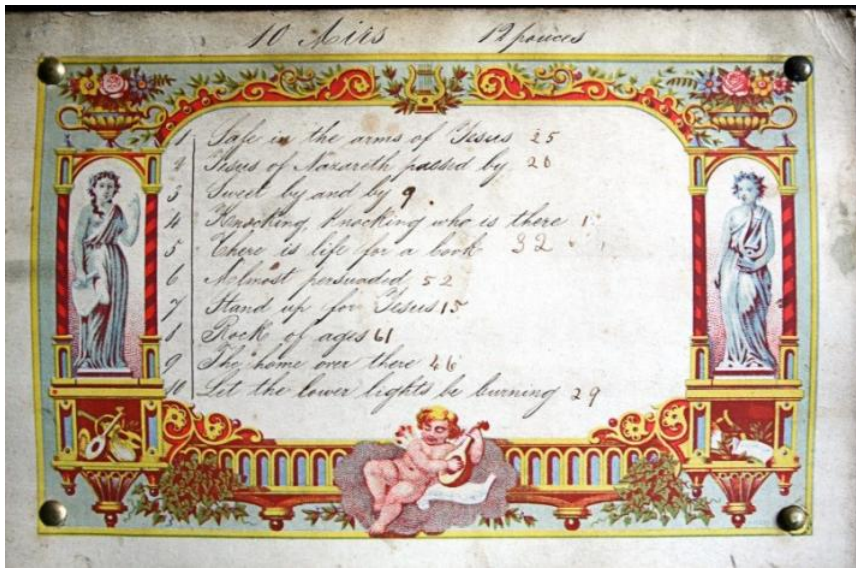 10 Airs 12 pouces
1 Safe in the arms of Jesus 25
2 Jesus of Nazareth passed by 20
3 Sweet by and by 9
4 Knocking, Knocking who is there 1
5 There is life for a book 32
6 Almost persuaded 52
7 Stand up for Jesus 15
8 Rock of ages 61
9 The home over there 46
10 Let the lower lights be burning 29